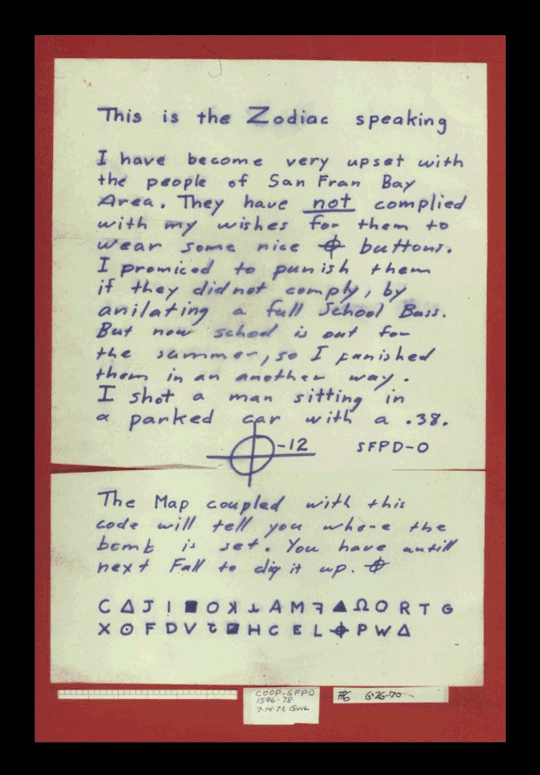 This is the Zodiac speaking
I have become very upset with
the people of San Fran Bay
Area. They have not complied
with my wishes for them to
wear some nice ⌖ buttons.
I promiced to punish them
if they did not comply, by
anilating a full School Buss.
But now school is out for
the summer, so I punished
them in an another way.
I shot a man sitting in
a parked car with a .38.
⌖-12 SFPD-0
The Map coupled with this
code will tell you where the
bomb is set. You have untill
next Fall to dig it up. ⌖
C Δ J I ■ O ꓘ ⅄ A M ꟻ ▲ Ω O R T G
X ⊙ F D V ◪ H C E L ⌖ P W Δ
COOP-SFPD
1596-78
#6 6-26-70